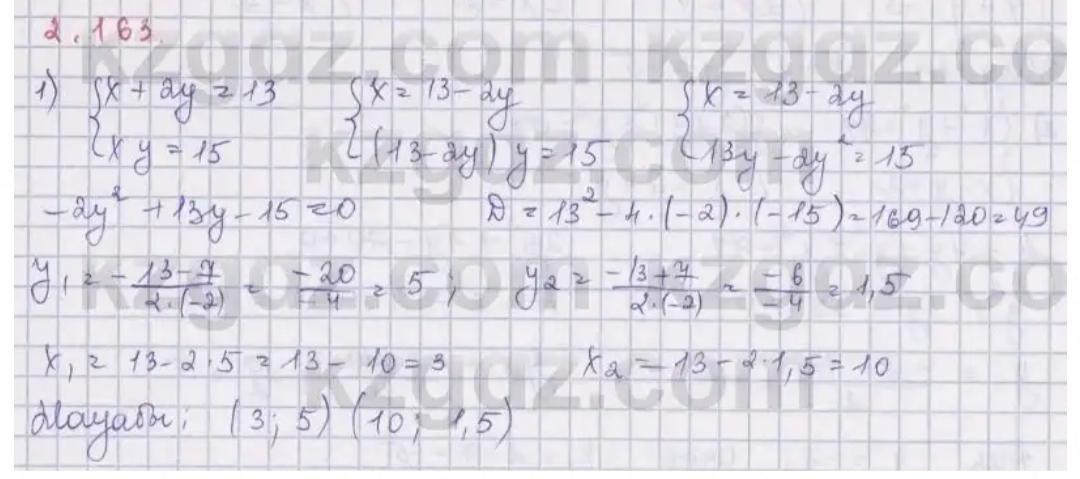 2.163.
1) {x + 2y = 13 {x = 13 - 2y {x = 13 - 2y
{xy = 15 {(13-2y) y = 15 {13y - 2y² = 15
-2y² + 13y - 15 = 0 D = 13² - 4·(-2)·(-15) = 169 - 120 = 49
y₁ = -13-7/2·(-2) = -20/-4 = 5; y₂ = -13+7/2·(-2) = -6/-4 = 1,5
x₁ = 13 - 2·5 = 13 - 10 = 3 x₂ = 13 - 2·1,5 = 10
Жауабы: (3; 5) (10; 1,5)
kzgdz.com